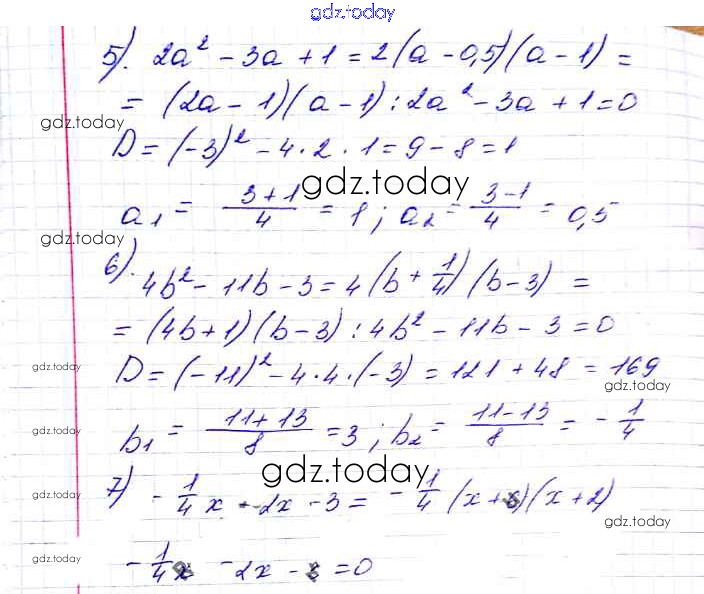 gdz.today
5). 2a² - 3a + 1 = 2(a - 0,5)(a - 1) =
= (2a - 1)(a - 1) : 2a² - 3a + 1 = 0
gdz.today
D = (-3)² - 4 · 2 · 1 = 9 - 8 = 1
gdz.today
a₁ = (3+1)/4 = 1 ; a₂ = (3-1)/4 = 0,5
gdz.today
6). 4b² - 11b - 3 = 4(b + 1/4)(b - 3) =
= (4b + 1)(b - 3) : 4b² - 11b - 3 = 0
gdz.today
D = (-11)² - 4 · 4 · (-3) = 121 + 48 = 169
gdz.today
b₁ = (11+13)/8 = 3 ; b₂ = (11-13)/8 = -1/4
gdz.today
gdz.today
7) -1/4 x - 2x - 3 = -1/4 (x + 6)(x + 2)
gdz.today
gdz.today
gdz.today
-1/4 x - 2x - 3 = 0